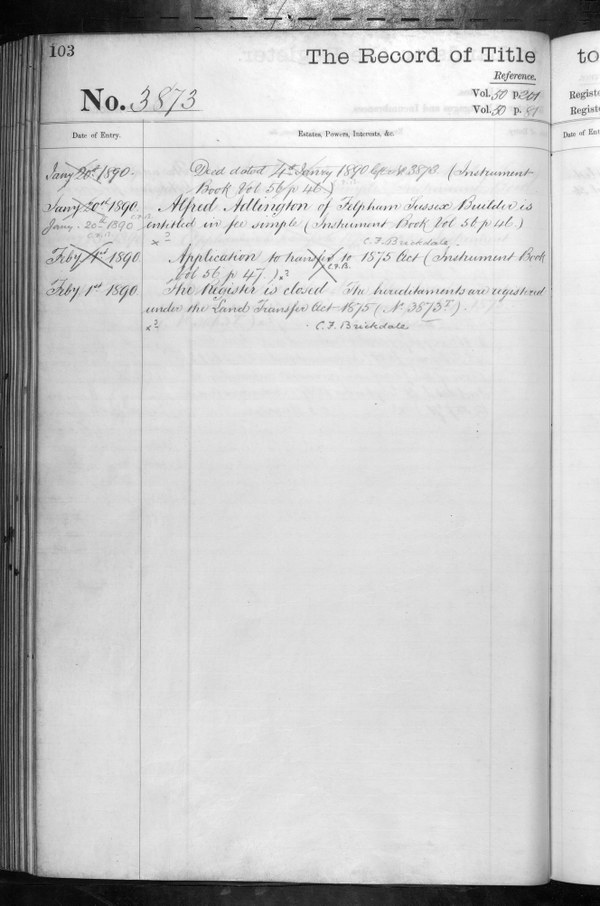 103
The Record of Title
to
Reference.
No. 3873
Vol. 50 p. 201
Vol. 50 p. 81
Registe
Registe
Date of Entry.
Estates, Powers, Interests, &c.
Date of Ent
Jany 20th 1890.
Deed dated 4th Janry 1890 3873 (Instrument
Book Vol 56 p 46)
Jany 20th 1890
Alfred Adlington of Felpham Sussex Builder is
Jany. 20th 1890
entitled in fee simple (Instrument Book Vol 56 p 46)
C. F. Brickdale.
Feby 1st 1890
Application to transfer to 1875 Act (Instrument Book
Vol 56 p 47)
C.F.B.
Feby 1st 1890
The Register is closed The hereditaments are registered
under the Land Transfer Act 1875 (No 3873
C. F. Brickdale